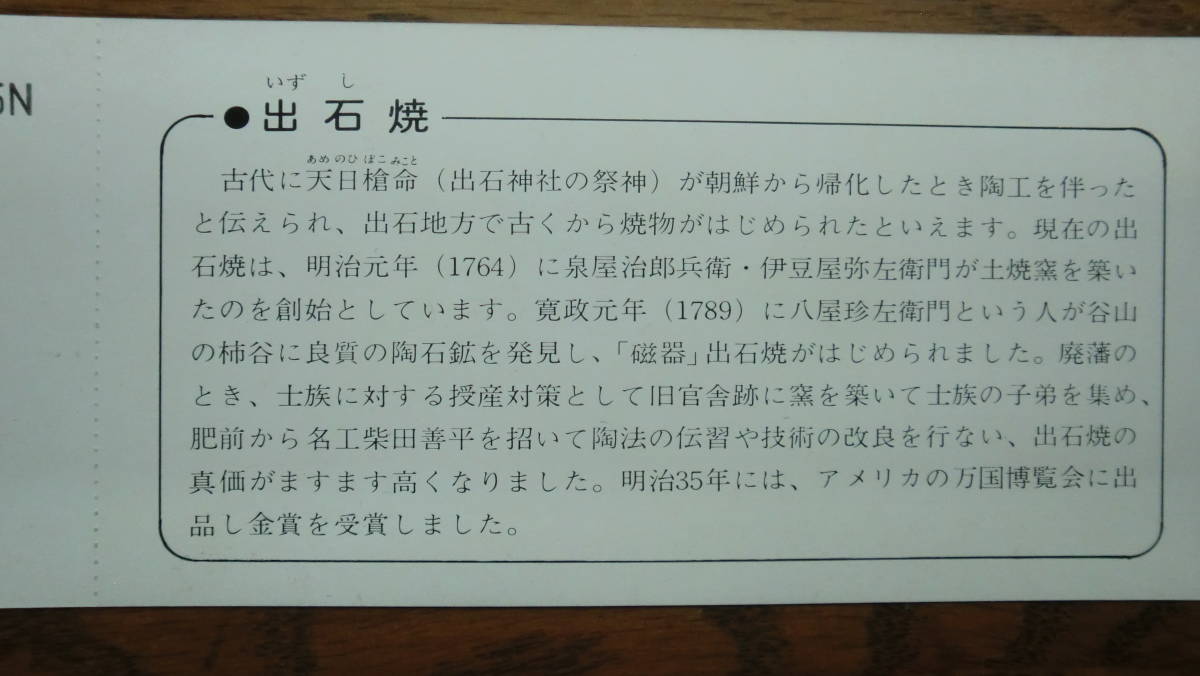 5N
いずし
●出石焼
あめのひぼこみこと
古代に天日槍命（出石神社の祭神）が朝鮮から帰化したとき陶工を伴った
と伝えられ、出石地方で古くから焼物がはじめられたといえます。現在の出
石焼は、明治元年（1764）に泉屋治郎兵衛・伊豆屋弥左衛門が土焼窯を築い
たのを創始としています。寛政元年（1789）に八屋珍左衛門という人が谷山
の柿谷に良質の陶石鉱を発見し、「磁器」出石焼がはじめられました。廃藩の
とき、士族に対する授産対策として旧官舎跡に窯を築いて士族の子弟を集め、
肥前から名工柴田善平を招いて陶法の伝習や技術の改良を行ない、出石焼の
真価がますます高くなりました。明治35年には、アメリカの万国博覧会に出
品し金賞を受賞しました。